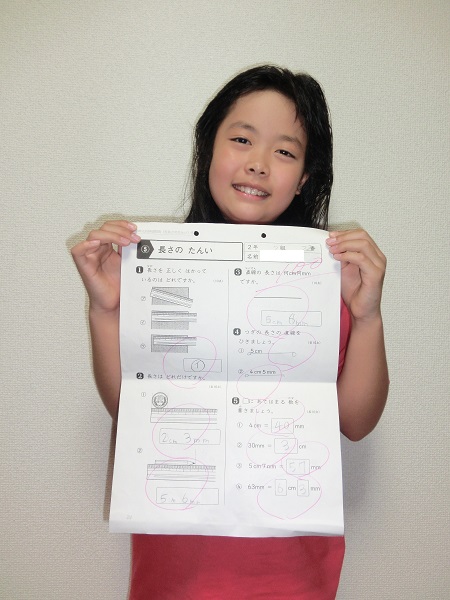 5 長さの たんい
2年 組 番
名前
1 長さを 正しく はかって
いるのは どれですか。
㋐
㋑
㋒
①
2 長さは どれだけですか。
①
2cm 3mm
②
5cm 6mm
3 直線の 長さは 何cm何mm
ですか。
4 つぎの 長さの 直線を
ひきましょう。
① 5cm
② 6cm5mm
5 □に あてはまる 数を
書きましょう。
① 4cm = 40 mm
② 30mm = 3 cm
③ 5cm7mm = 57 mm
④ 63mm = 6 cm 3 mm